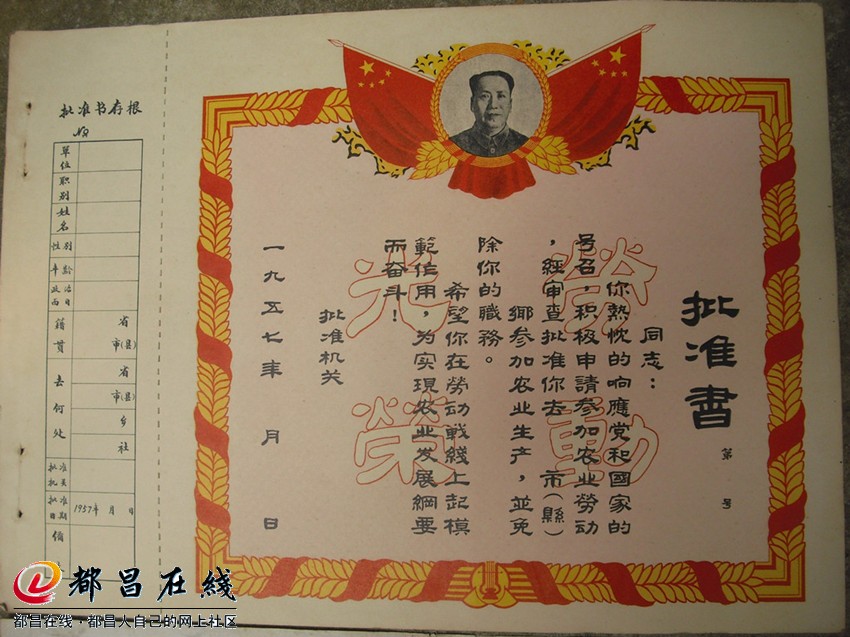 批准书存根
字
单位
职别
姓名
性别
年龄
政治面目
籍贯
省
市(县)
去何处
省
市(县)
乡
社
批准机关
批准日期
1957年 月 日
备
批准書
第 号
同志：
你熱忱的响應党和國家的
号召，积极申請参加农业勞动
，經审查批准你去 市(縣)
鄉参加农业生产，並免
除你的職務。
希望你在勞动战綫上起模
範作用，为实現农业发展綱要
而奋斗！
批准机关
一九五七年 月 日
勞動
光榮
都昌在線
都昌在线·都昌人自己的网上社区